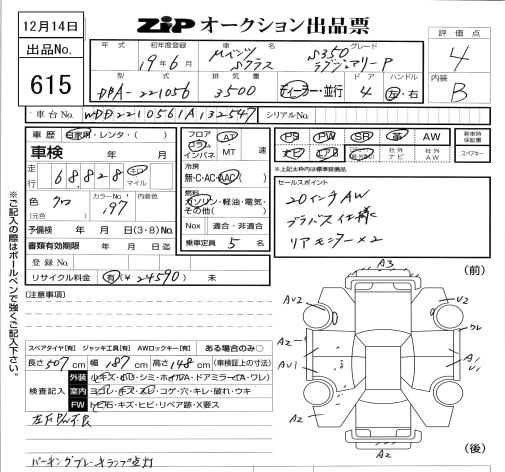 12月14日
ZIPオークション出品票
出品No.
615
年式 初年度登録 車名 グレード
19年6月 Mベンツ Sクラス S350
型式 排気量 ドア ハンドル
DBA-221056 3500 ディーラー・並行 4 左・右
評価点
4
内装
B
車台No. WDD2210561A132547 シリアルNo.
車歴 自家用・レンタ・( )
車検 年 月
走行 68,828 キロ マイル
色 クロ カラーNo. 197 内装色
(元色)
予備検 年 月 日(3・8)No.
書類有効期限 年 月 日迄
登録No.
リサイクル料金 有(¥24590) 未
フロア コラム インパネ AT・MT 速
冷房
無・C・AC・AAC( )
燃料
ガソリン・軽油・電気・その他( )
Nox 適合・非適合
乗車定員 5 名
PS PW SR 革 AW
ナビ エアB 社外ナビ 社外AW
新車時保証書
スペアキー
*上記太枠内は標準装備品
セールスポイント
20インチAW
ブラバス仕様
リアモニター×2
※ご記入の際はボールペンで強くご記入下さい。
[注意事項]
スペアタイヤ[有] ジャッキ工具[有] AWロックキー[有] ある場合のみ○
長さ507cm 幅187cm 高さ148cm (車検証上の寸法)
検査記入
外装 小キズ・凹・シミ・ホイルA・ドアミラー(A・ワレ)
室内 ヨゴレ・キズ・スレ・コゲ・穴・キレ・破れ・ウキ
FW トビ石・キズ・ヒビ・リペア跡・X要ス
パーキングブレーキランプ点灯
(前)
A3
AU2
U2
ワレ
A2
AU1
A1
U1
A2
A2
A2
(後)